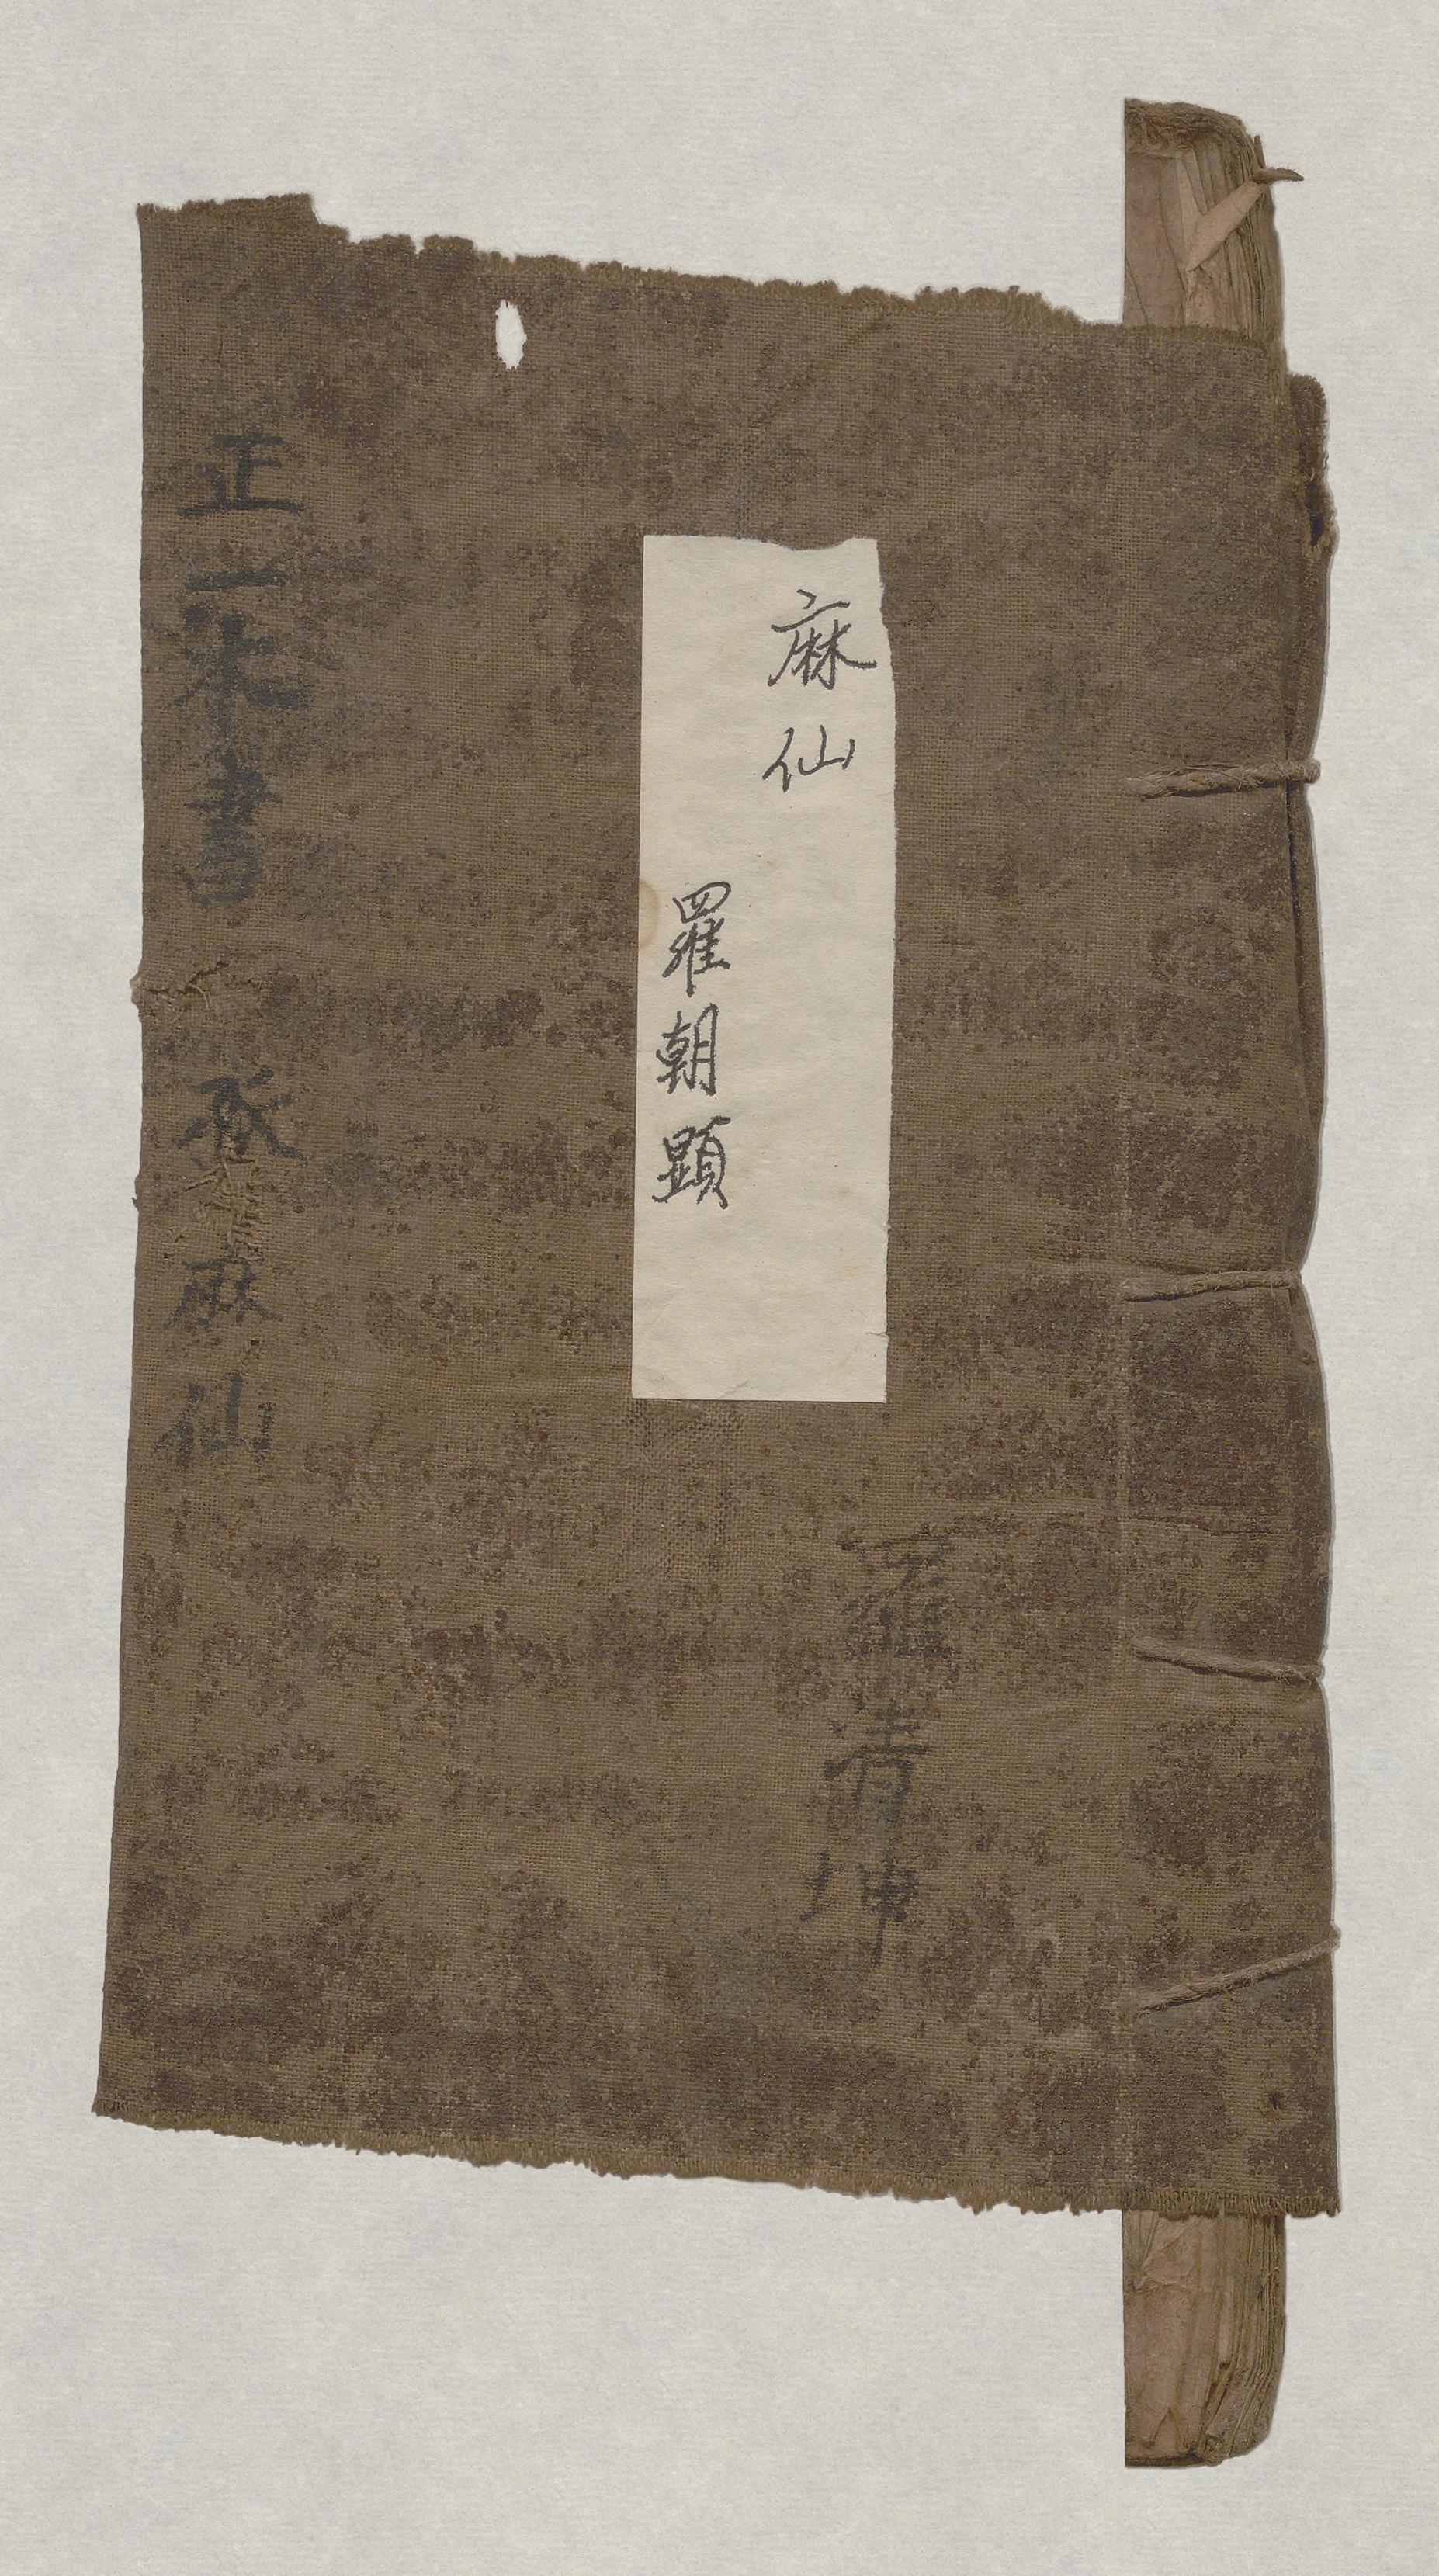 麻仙
羅朝顕
羅清坤
正一本書
麻仙